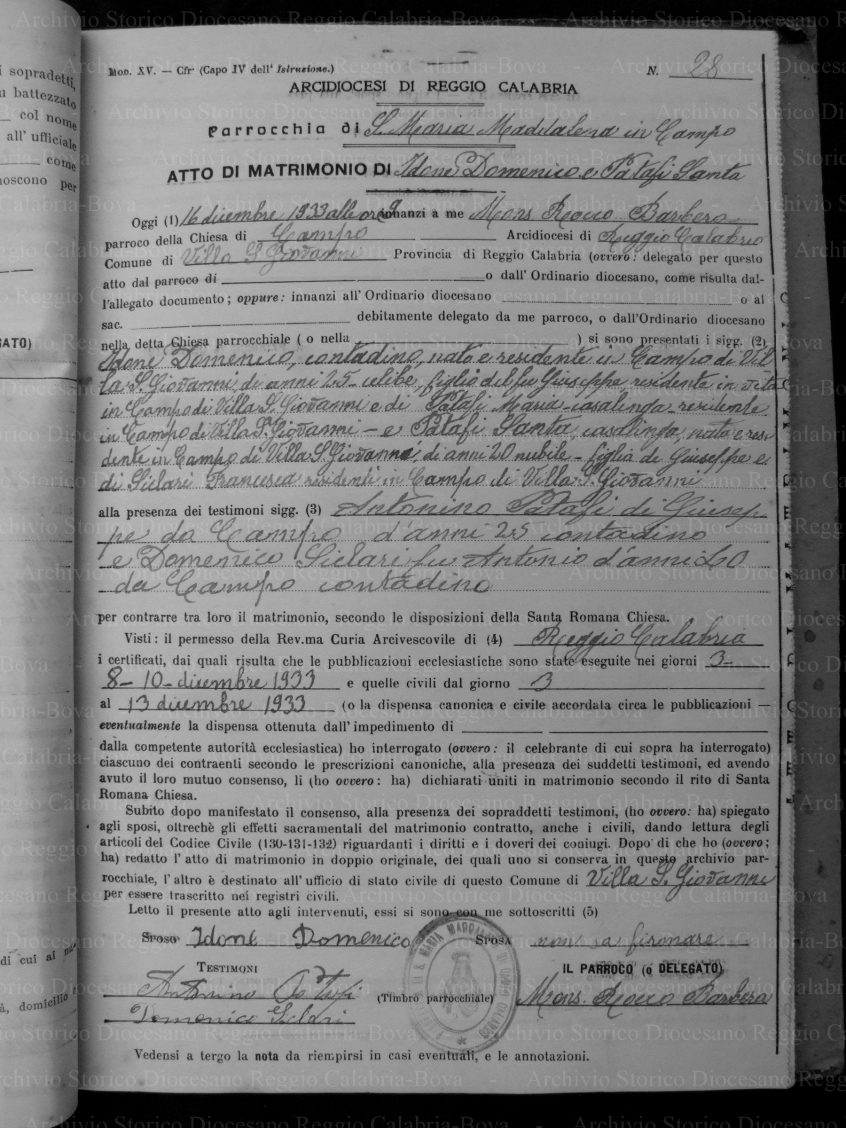 Mod. XV. — Cfr (Capo IV dell' Istruzione.)
N. 28
ARCIDIOCESI DI REGGIO CALABRIA
Parrocchia di S. Maria Maddalena in Campo
ATTO DI MATRIMONIO DI Idone Domenico e Patafi Santa
Oggi (1) 16 dicembre 1933 alle ore 9 innanzi a me Mons. Rocco Barbera
parroco della Chiesa di Campo Arcidiocesi di Reggio Calabria
Comune di Villa S. Giovanni Provincia di Reggio Calabria (ovvero: delegato per questo
atto dal parroco di o dall' Ordinario diocesano, come risulta dal-
l'allegato documento; oppure: innanzi all' Ordinario diocesano o al
sac. debitamente delegato da me parroco, o dall'Ordinario diocesano
nella detta Chiesa parrocchiale ( o nella ) si sono presentati i sigg. (2)
Idone Domenico, contadino, nato e residente in Campo di Vil-
la S. Giovanni di anni 25 - celibe, figlio del fu Giuseppe residente in vita
in Campo di Villa S. Giovanni e di Patafi Maria - casalinga - residente
in Campo di Villa S. Giovanni - e Patafi Santa, casalinga, nato e resi-
dente in Campo di Villa S. Giovanni di anni 20 nubile - figlia di Giuseppe e
di Siclari Francesca residenti in Campo di Villa S. Giovanni
alla presenza dei testimoni sigg. (3) Antonino Patafi di Giusep-
pe da Campo d'anni 25 contadino
e Domenico Siclari fu Antonio d'anni
da Campo contadino
per contrarre tra loro il matrimonio, secondo le disposizioni della Santa Romana Chiesa.
Visti: il permesso della Rev.ma Curia Arcivescovile di (4) Reggio Calabria
i certificati, dai quali risulta che le pubblicazioni ecclesiastiche sono state eseguite nei giorni 3-
8- 10- dicembre 1933 e quelle civili dal giorno 3
al 13 dicembre 1933 (o la dispensa canonica e civile accordata circa le pubblicazioni —
eventualmente la dispensa ottenuta dall' impedimento di
dalla competente autorità ecclesiastica) ho interrogato (ovvero: il celebrante di cui sopra ha interrogato)
ciascuno dei contraenti secondo le prescrizioni canoniche, alla presenza dei suddetti testimoni, ed avendo
avuto il loro mutuo consenso, li (ho ovvero: ha) dichiarati uniti in matrimonio secondo il rito di Santa
Romana Chiesa.
Subito dopo manifestato il consenso, alla presenza dei sopraddetti testimoni, (ho ovvero: ha) spiegato
agli sposi, oltrechè gli effetti sacramentali del matrimonio contratto, anche i civili, dando lettura degli
articoli del Codice Civile (130-131-132) riguardanti i diritti e i doveri dei coniugi. Dopo di che ho (ovvero;
ha) redatto l' atto di matrimonio in doppio originale, dei quali uno si conserva in questo archivio par-
rocchiale, l'altro è destinato all' ufficio di stato civile di questo Comune di Villa S. Giovanni
per essere trascritto nei registri civili.
Letto il presente atto agli intervenuti, essi si sono con me sottoscritti (5)
SPOSO Idone Domenico SPOSA non sa firmare
TESTIMONI
IL PARROCO (o DELEGATO)
Antonino Patafi
(Timbro parrocchiale)
Mons. Rocco Barbera
Domenico Siclari
Vedensi a tergo la nota da riempirsi in casi eventuali, e le annotazioni.
i sopradetti,
battezzato
col nome
all' ufficiale
come
noscono per
ATO)
di cui al
à, domicilio
Archivio Storico Diocesano Reggio Calabria-Bova